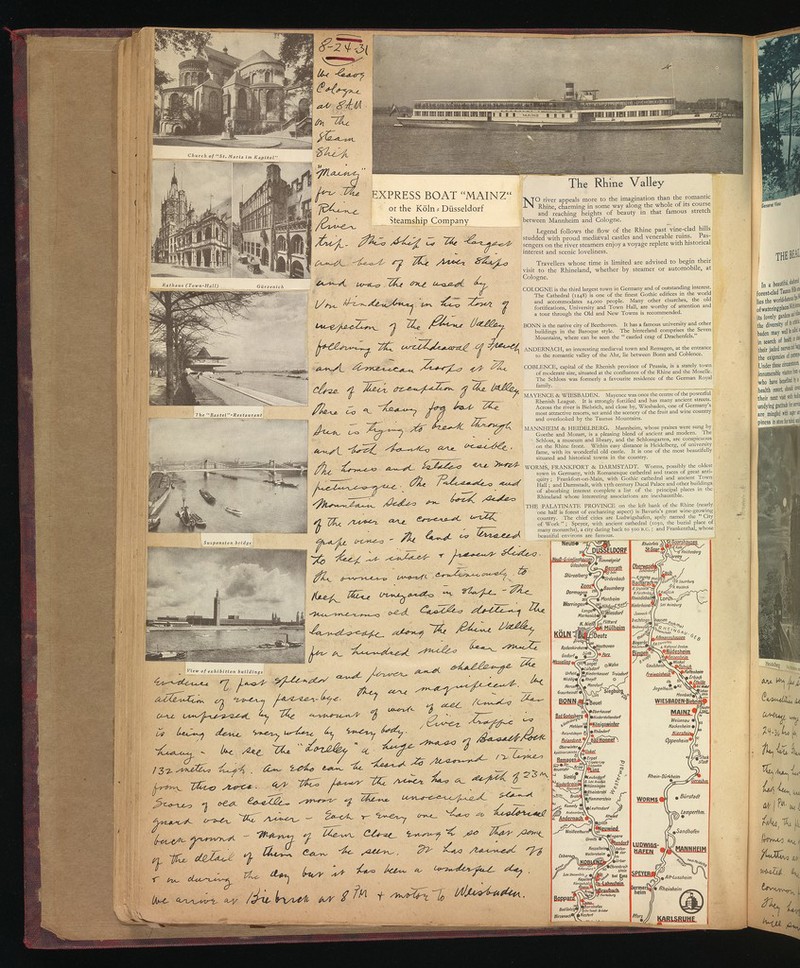 8-24-31
We leave
Cologne
at 8 A.M.
on the
Steam
Ship
"Mainz"
for the
Rhine
River
trip. This ship is the largest
and best of the river ships
and was the one used by
Von Hindenburg in his tour of
inspection of the Rhine Valley
following the withdrawal of French
and American troops at the
close of their occupation of the Valley.
There is a heavy fog but the
Sun is trying to break through
and both banks are visible.
The homes and Estates are most
picturesque. The Palisades and
Mountain sides on both sides
of the river are covered with
grape vines - The land is terraced
to keep it intact & prevent slides.
The owners work continuously to
keep their vineyards in shape - The
numerous old Castles dotting the
landscape along the Rhine Valley
for a hundred miles bear mute
Evidence of past splendor and power and challenge the
attention of every passer-bye. They are magnificent. We
are impressed by the amount of work of all kinds that
is being done everywhere by everybody. River traffic is
heavy - We see the "Lorelley" a huge mass of Basalt Rock
132 meters high. An Echo can be heard to resound 12 times
from this rock. At this point the river has a depth of 23 m
Scores of old Castles most of them unoccupied stand
guard over the river - Each & every one has a historical
back ground - Many of them close enough so that some
of the detail of them can be seen. It has rained off
& on during the day but it has been a wonderful day.
We arrive at Biebrich at 8 PM & motor to Weisbaden.
Church of "St. Maria im Kapitol"
Rathaus (Town-Hall) Gürzenich
The "Bastei"-Restaurant
Suspension bridge
View of exhibition buildings
MAINZ
EXPRESS BOAT "MAINZ"
or the Köln-Düsseldorf
Steamship Company
The Rhine Valley
NO river appeals more to the imagination than the romantic
Rhine, charming in some way along the whole of its course
and reaching heights of beauty in that famous stretch
between Mannheim and Cologne.
Legend follows the flow of the Rhine past vine-clad hills
studded with proud mediæval castles and venerable ruins. Pas-
sengers on the river steamers enjoy a voyage replete with historical
interest and scenic loveliness.
Travellers whose time is limited are advised to begin their
visit to the Rhineland, whether by steamer or automobile, at
Cologne.
COLOGNE is the third largest town in Germany and of outstanding interest.
The Cathedral (1248) is one of the finest Gothic edifices in the world
and accommodates 24,000 people. Many other churches, the old
fortifications, University and Town Hall, are worthy of attention and
a tour through the Old and New Towns is recommended.
BONN is the native city of Beethoven. It has a famous university and other
buildings in the Baroque style. The hinterland comprises the Seven
Mountains, where can be seen the "castled crag of Drachenfels."
ANDERNACH, an interesting mediæval town and Remagen, at the entrance
to the romantic valley of the Ahr, lie between Bonn and Coblence.
COBLENCE, capital of the Rhenish province of Prussia, is a stately town
of moderate size, situated at the confluence of the Rhine and the Moselle.
The Schloss was formerly a favourite residence of the German Royal
family.
MAYENCE & WIESBADEN. Mayence was once the centre of the powerful
Rhenish League. It is strongly fortified and has many ancient streets.
Across the river is Biebrich, and close by, Wiesbaden, one of Germany's
most attractive resorts, set amid the scenery of the fruit and wine country
and overlooked by the Taunus Mountains.
MANNHEIM & HEIDELBERG. Mannheim, whose praises were sung by
Goethe and Mozart, is a pleasing blend of ancient and modern. The
Schloss, a museum and library, and the Schlossgarten, are conspicuous
on the Rhine front. Within easy distance is Heidelberg, of university
fame, with its wonderful old castle. It is one of the most beautifully
situated and historical towns in the country.
WORMS, FRANKFORT & DARMSTADT. Worms, possibly the oldest
town in Germany, with Romanesque cathedral and traces of great anti-
quity; Frankfort-on-Main, with Gothic cathedral and ancient Town
Hall; and Darmstadt, with 15th century Ducal Palace and other buildings
of absorbing interest complete a list of the principal places in the
Rhineland whose interesting associations are inexhaustible.
THE PALATINATE PROVINCE on the left bank of the Rhine (nearly
one half is forest of enchanting aspect) is Bavaria's great wine-growing
country. The chief cities are Ludwigshafen, aptly named the "City
of Work"; Speyer, with ancient cathedral (1030, the burial place of
many monarchs), a city dating back to 500 B.C.; and Frankenthal, whose
beautiful environs are famous.
DÜSSELDORF
Benrath
Monheim
Mülheim
KÖLN Deutz
Siegburg
BONN
Königswinter
Remagen
Linz
Westerwald
Andernach
Neuwied
KOBLENZ
Boppard
Braubach
Oberwesel
Bacharach
Lorch
Bingen
Rüdesheim
WIESBADEN-Biebrich
MAINZ
Oppenheim
Gernsheim
Rhein-Dürkheim
WORMS
Bürstadt
Lampertheim
Sandhofen
LUDWIGS-
HAFEN
MANNHEIM
SPEYER
Rheinsheim
KARLSRUHE
THE BEAU